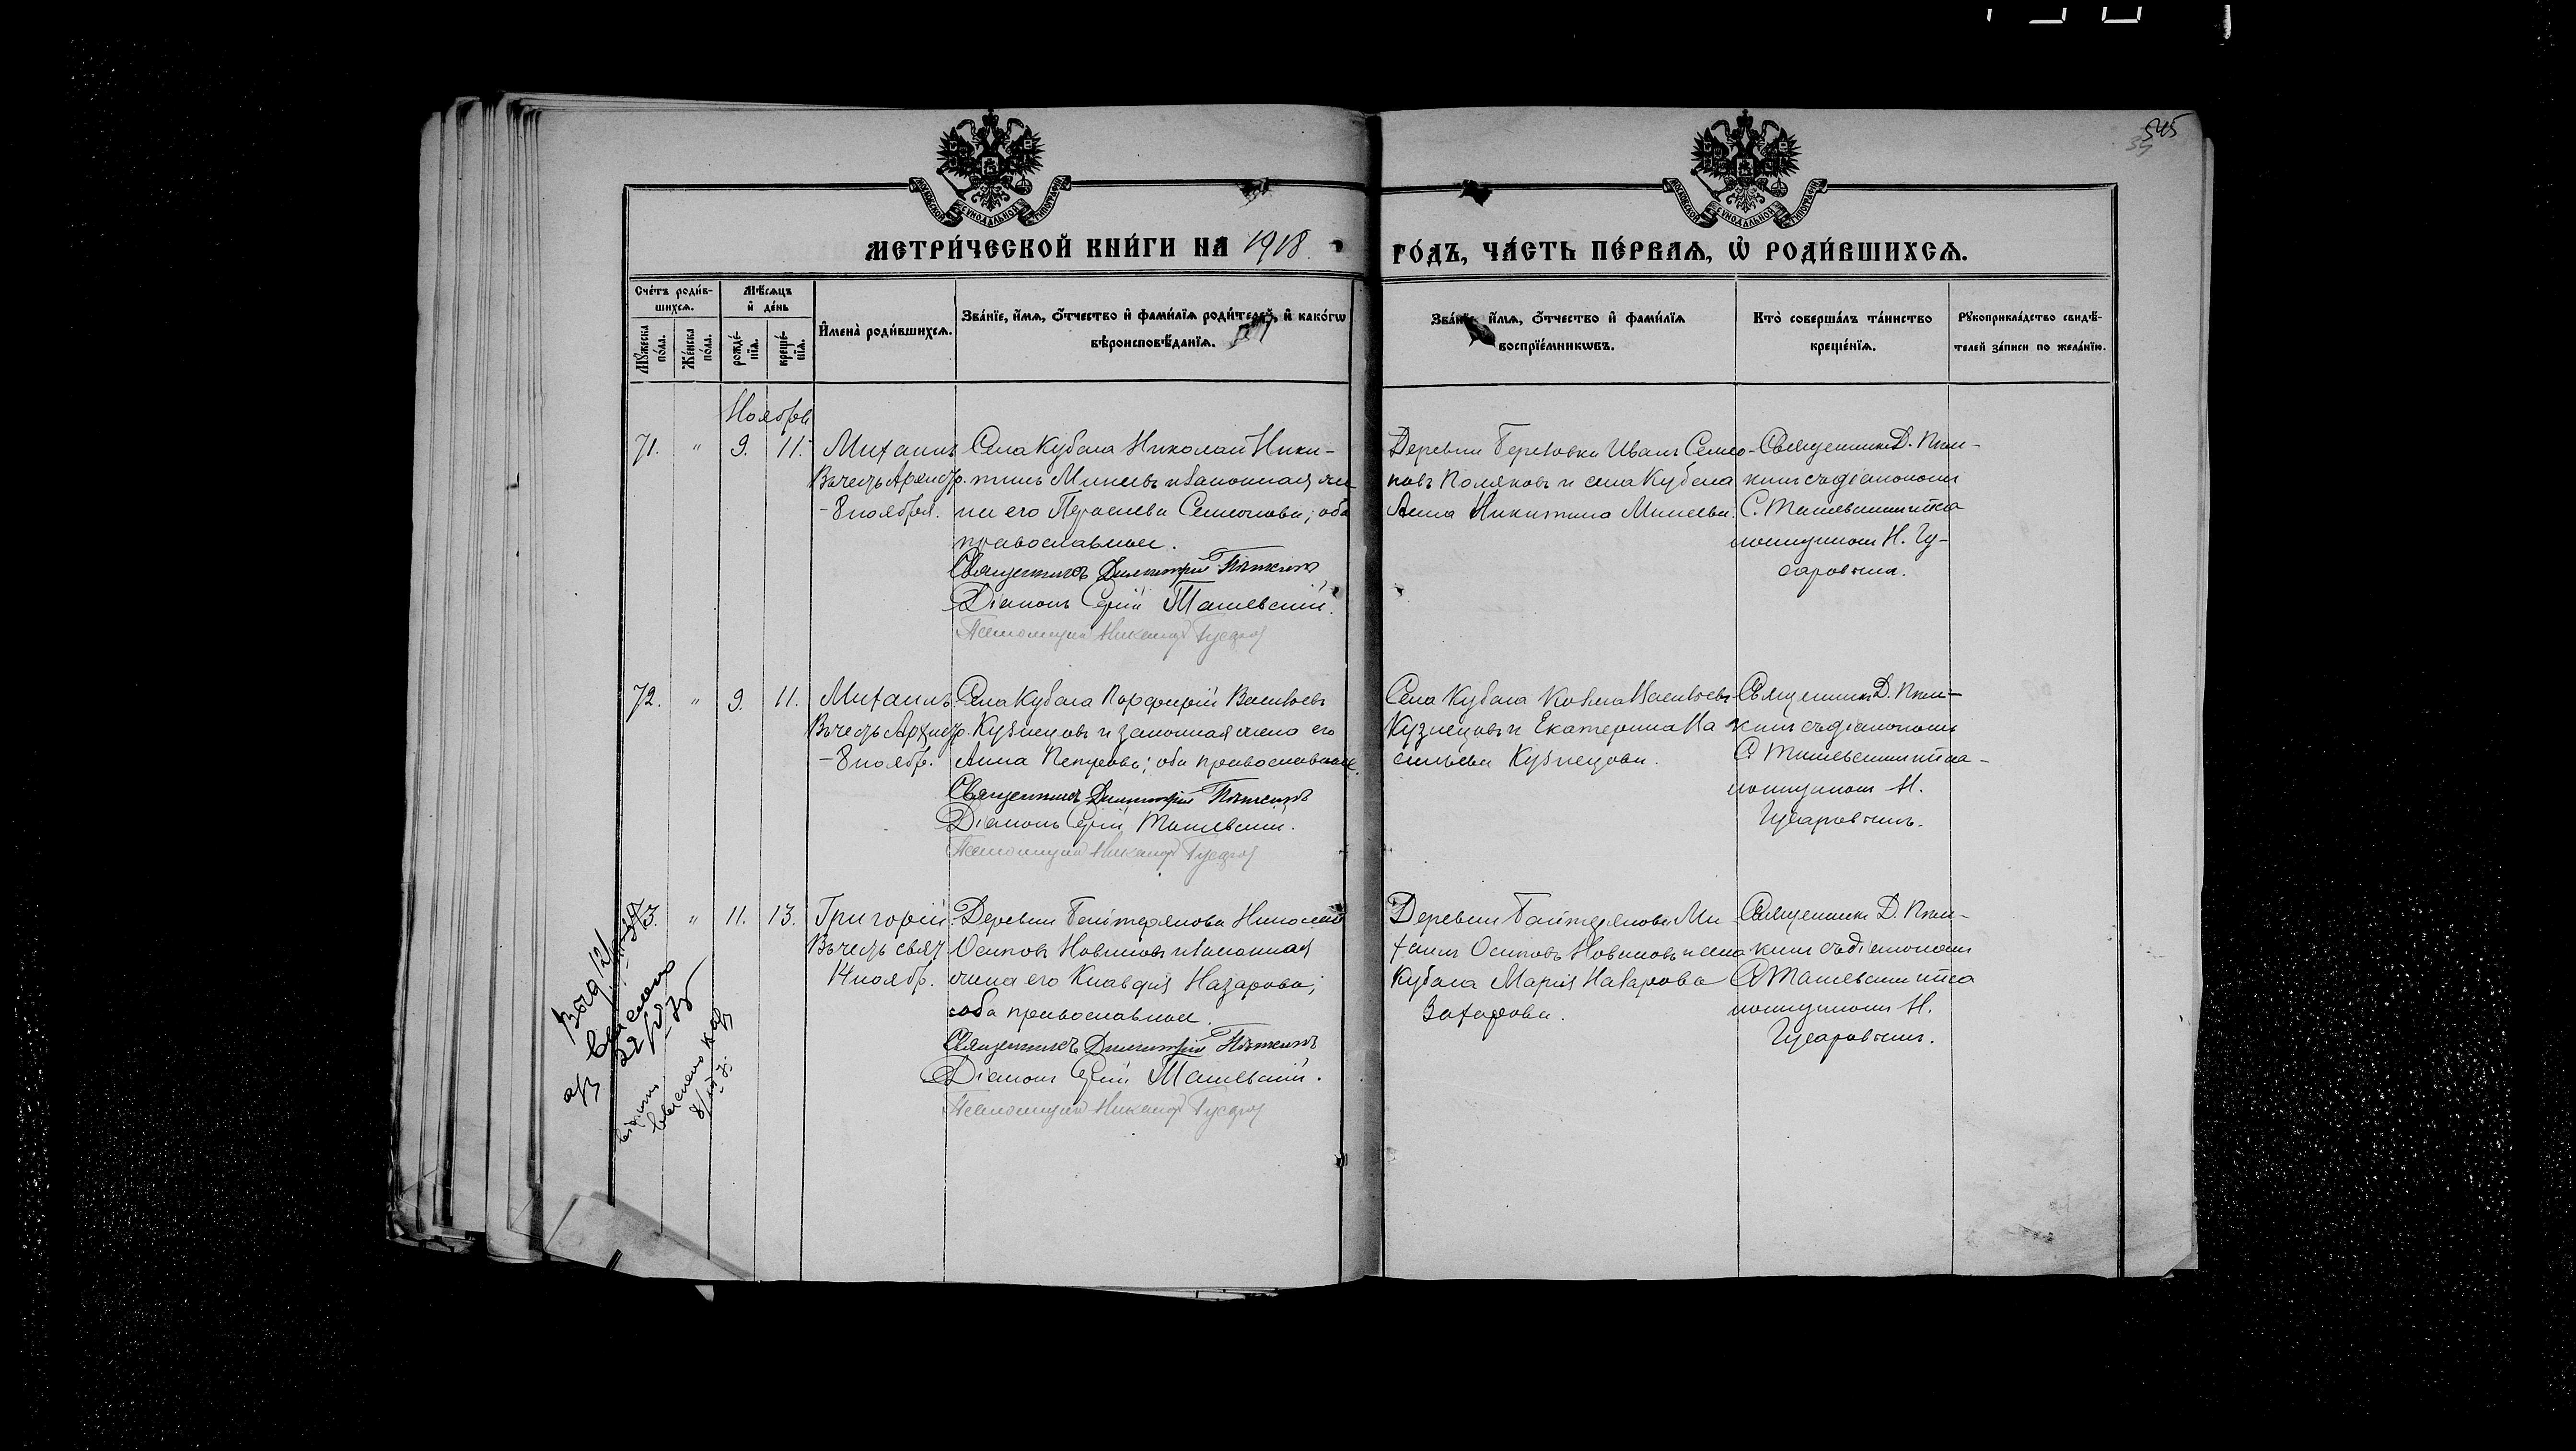 545
МЕТРИ́ЧЕСКОЙ КНИ́ГИ НА 1918 ГО́ДЪ, ЧА́СТЬ ПЕ́РВАѦ, Ѡ҆ РОДИ́ВШИХСѦ.
Сче́тъ роди́в-
шихсѧ.
Мꙋ́жеска
по́ла.
Же́нска
по́ла.
Мѣ́сѧцъ
и҆ де́нь
рожде́-
нїѧ.
креще́-
нїѧ.
И҆мена̀ роди́вшихсѧ.
Зва́нїе, и҆́мѧ, ѻ҆́тчество и҆ фами́лїѧ роди́телей, и҆ како́гѡ
вѣроисповѣ́данїѧ.
Зва́нїе, и҆́мѧ, ѻ҆́тчество и҆ фами́лїѧ
воспрїе́мникѡвъ.
Кто̀ соверша́лъ та́инство
креще́нїѧ.
Рꙋкоприкла́дство свидѣ́-
телей за́писи по жела́нїю.
Ноябрь
71. " 9. 11.
Михаилъ
Въ честь Архистр.
- 8 ноября.
Села Кубаса Николай Ники-
тинъ Минеевъ и законная же-
на его Семионова; оба
православные.
Священникъ Димитрій
Діаконъ Сергій
Псаломщикъ Никаноръ
Деревни Березовки Иванъ Семео-
новъ Поляковъ и села Кубаса
Анна Никитина Минеева.
Священникъ Д.
кинъ съ діакономъ
С. и пса-
ломщикомъ Н. Гу-
саровымъ.
72. " 9. 11.
Михаилъ
Въ честь Архистр.
- 8 ноябр.
Села Кубаса Порфирій Васильевъ
Кузнецовъ и законная жена его
Анна Петрова; оба православные.
Священникъ Димитрій
Діаконъ Сергій
Псаломщикъ Никаноръ
Села Кубаса Козма Васильевъ
Кузнецовъ и Екатерина Ва
сильева Кузнецова.
Священникъ Д.
кинъ съ діакономъ
С. и пса-
ломщикомъ Н.
Гусаровымъ.
73. " 11. 13.
Григорій
Въ честь свят.
14 ноябр.
Деревни Байтерякова Николай
Осиповъ Новиковъ и законная
жена его Клавдія Назарова;
оба православные.
Священникъ Димитрій
Діаконъ Сергій
Псаломщикъ Никаноръ
Деревни Байтерякова Ми
хаилъ Осиповъ Новиковъ и села
Кубаса Марія Назарова
Захарова.
Священникъ Д.
кинъ съ діакономъ
С. и пса
ломщикомъ Н.
Гусаровымъ.